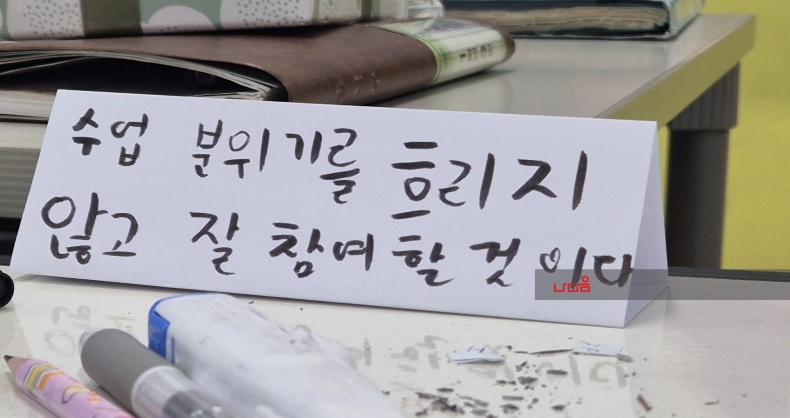 수업 분위기를 흐리지
않고 잘 참여할 것이다